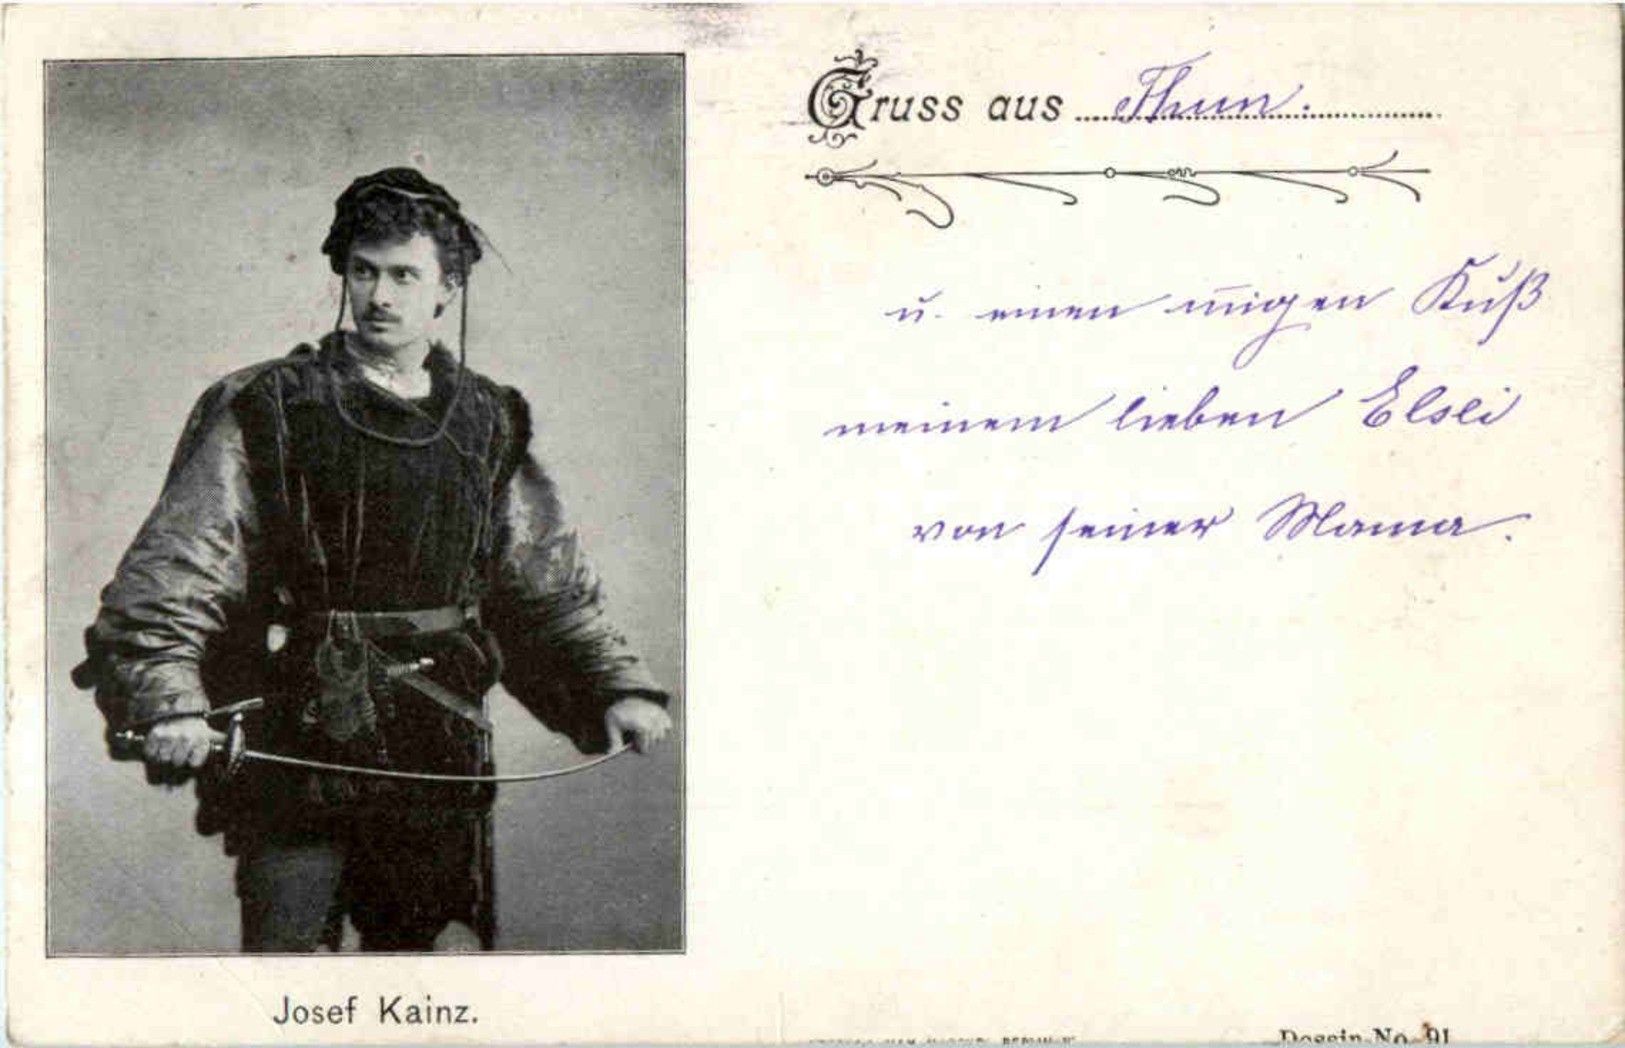 Gruss aus Thun.
u. einen innigen Kuß
meinem lieben Elsli
von seiner Mama.
Josef Kainz.
Dessin No. 91